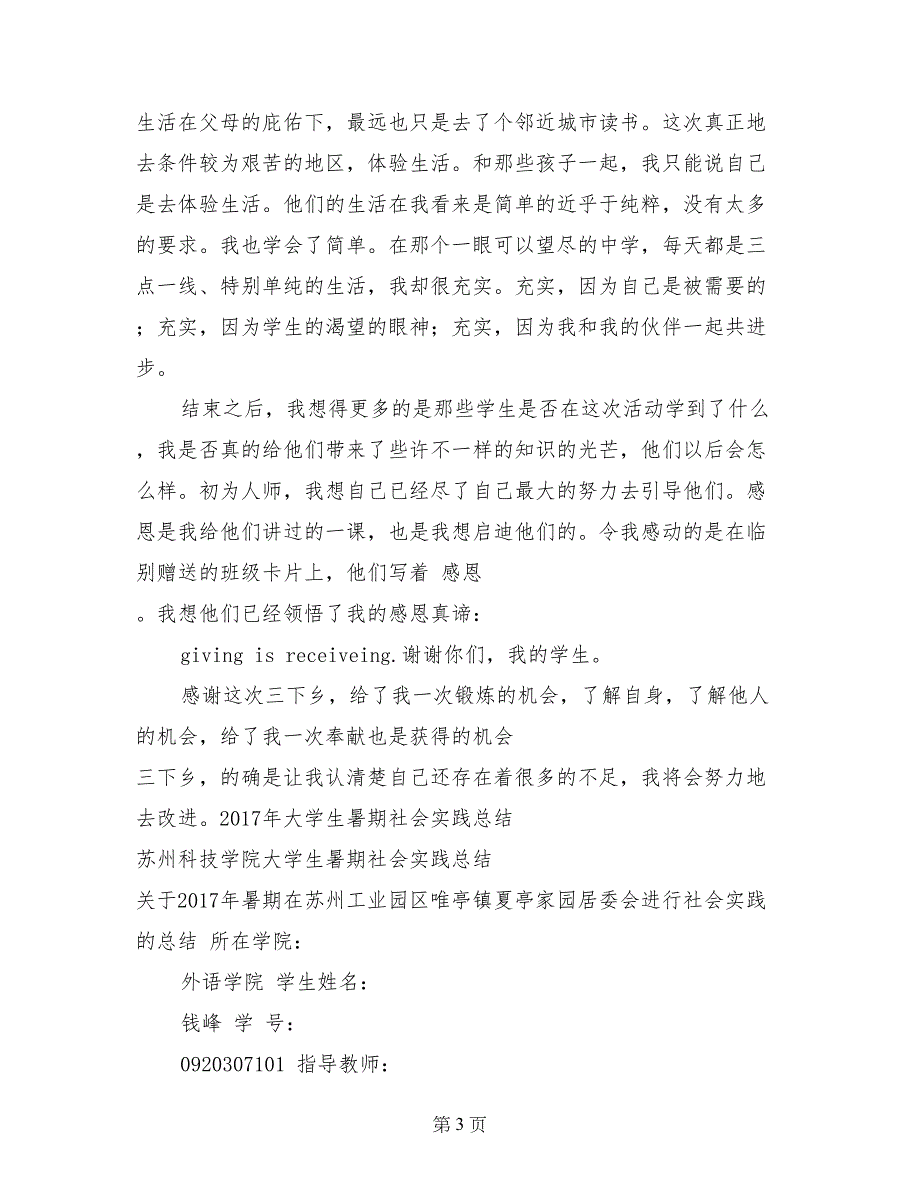 生活在父母的庇佑下，最远也只是去了个邻近城市读书。这次真正地
去条件较为艰苦的地区，体验生活。和那些孩子一起，我只能说自己
是去体验生活。他们的生活在我看来是简单的近乎于纯粹，没有太多
的要求。我也学会了简单。在那个一眼可以望尽的中学，每天都是三
点一线、特别单纯的生活，我却很充实。充实，因为自己是被需要的
；充实，因为学生的渴望的眼神；充实，因为我和我的伙伴一起共进
步。
结束之后，我想得更多的是那些学生是否在这次活动学到了什么
，我是否真的给他们带来了些许不一样的知识的光芒，他们以后会怎
么样。初为人师，我想自己已经尽了自己最大的努力去引导他们。感
恩是我给他们讲过的一课，也是我想启迪他们的。令我感动的是在临
别赠送的班级卡片上，他们写着 感恩
。我想他们已经领悟了我的感恩真谛：
giving is receiveing.谢谢你们，我的学生。
感谢这次三下乡，给了我一次锻炼的机会，了解自身，了解他人
的机会，给了我一次奉献也是获得的机会
三下乡，的确是让我认清楚自己还存在着很多的不足，我将会努力地
去改进。2017年大学生暑期社会实践总结
苏州科技学院大学生暑期社会实践总结
关于2017年暑期在苏州工业园区唯亭镇夏亭家园居委会进行社会实践
的总结 所在学院：
外语学院 学生姓名：
钱峰 学 号：
0920307101 指导教师：
第 3 页